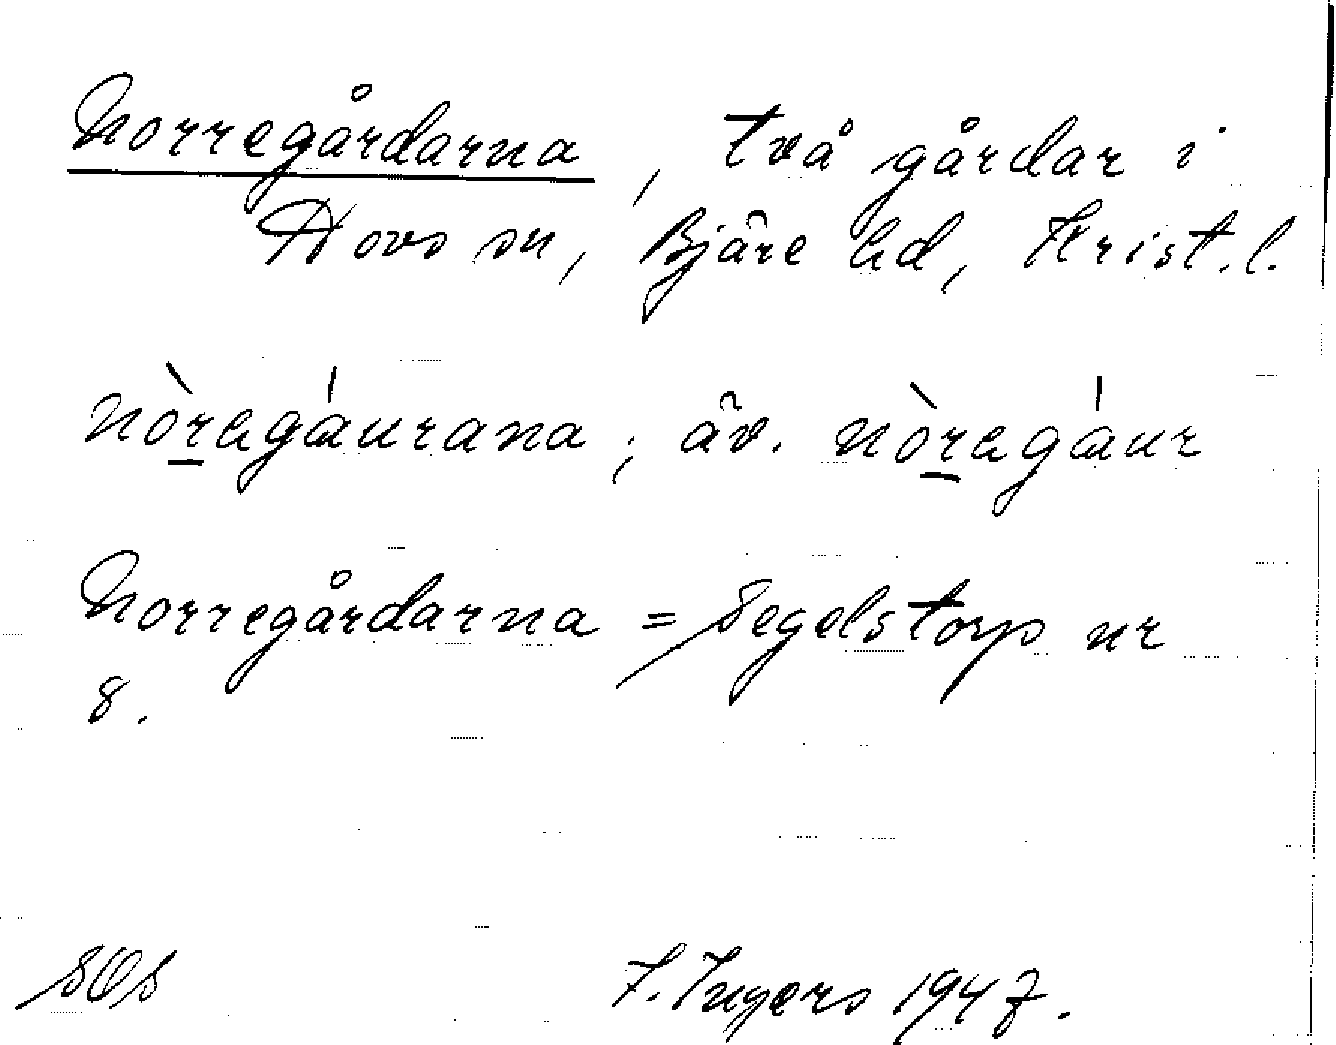 Norregårdarna, två gårdar i
Hovs sn, Bjäre hd, Krist. l.
nòragáurana; äv. nòragáur
Norregårdarna = Segelstorp nr
8.
SOS
I. Ingers 1947.